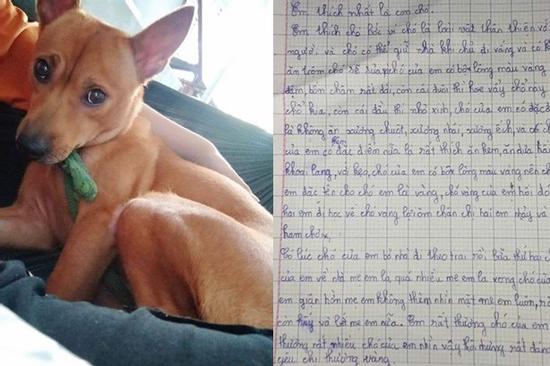 Em thích nhất là con chó.
Em thích chó bởi vì chó là loại vật thân thiện với
người và chó có thể giữ nhà khi chủ đi vắng và có k
ăn trộm chó sẽ sủa, chó của em có bộ lông màu vàng
đêm, bốn chân rất dài, còn cái đuôi thì hoe vẩy chỗ nay
chỗ kia, còn cái đầu thì nhỏ xinh, chó của em có đặc
là không ăn xương chuột, xương nhái, xương ếch, và có
của em có đặc điểm nữa là rất thích ăn kem, ăn dưa hấu
khoai lang, và kẹo, chó của em có bộ lông màu vàng nên
em đặc tên cho chó em là vàng, chó vàng của em hồi đó
hai em đi học về chó vàng lại ôm chân chị hai em nhảy và
ham chơi,
Có lúc chó của em bỏ nhà đi theo trai rồi bữa thứ hai
của em về nhà mẹ em la quá nhiều mẹ em la xong chó của
em giận hờn mẹ em không thèm nhìn mặt mẹ em luôn,
còn và hờ mẹ em nữa. Em rất thương chó của em
thương rất nhiều chó của em nhìn vậy hồi mừng rất đáng
yêu chị thương vàng.